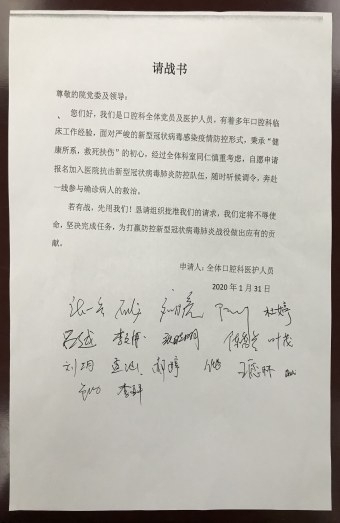 请战书
尊敬的院党委及领导：
您们好，我们是口腔科全体党员及医护人员，有着多年口腔科临
床工作经验，面对严峻的新型冠状病毒感染疫情防控形式，秉承“健
康所系，救死扶伤”的初心，经过全体科室同仁慎重考虑，自愿申请
报名加入医院抗击新型冠状病毒肺炎防控队伍，随时听候调令，奔赴
一线参与确诊病人的救治。
若有战，先用我们！恳请组织批准我们的请求，我们定将不辱使
命，坚决完成任务，为打赢防控新型冠状病毒肺炎战役做出应有的贡
献。
申请人：全体口腔科医护人员
2020 年 1 月 31 日
杜婷
叶茂
刘玥